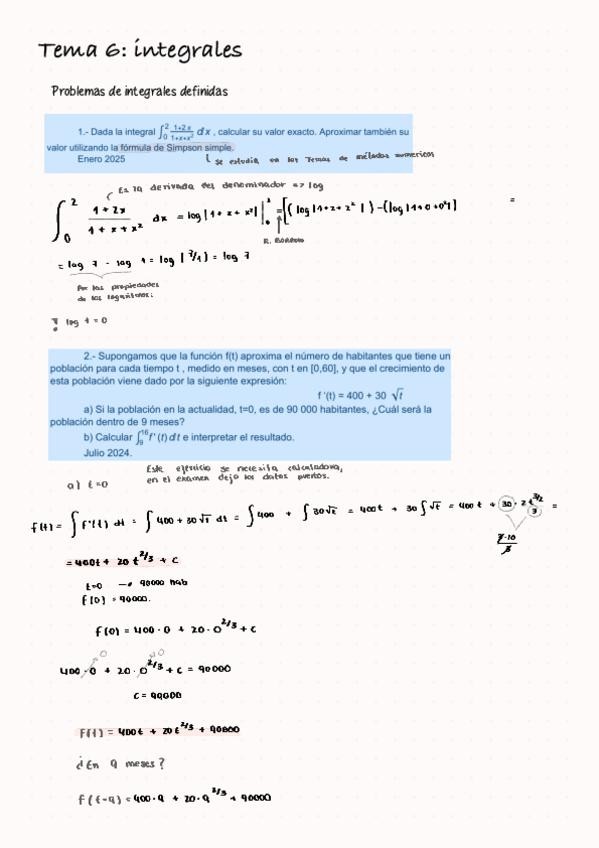 Tema 6: integrales
Problemas de integrales definidas
1.- Dada la integral ∫₀² (1+2x)/(1+x+x²) dx , calcular su valor exacto. Aproximar también su
valor utilizando la fórmula de Simpson simple.
Enero 2025
se estudia en los Temas de métodos numericos
Es la derivada del denominador => log
∫₀² (1+2x)/(1+x+x²) dx = log|1+x+x²| |₀² = [(log|1+2+2²|) - (log|1+0+0²|] =
R. Barrow
= log 7 - log 1 = log|7/1| = log 7
Por las propiedades
de los logaritmos.
! log 1 = 0
2.- Supongamos que la función f(t) aproxima el número de habitantes que tiene un
población para cada tiempo t , medido en meses, con t en [0,60], y que el crecimiento de
esta población viene dado por la siguiente expresión:
f '(t) = 400 + 30 √t
a) Si la población en la actualidad, t=0, es de 90 000 habitantes, ¿Cuál será la
población dentro de 9 meses?
b) Calcular ∫₉¹⁶ f '(t) dt e interpretar el resultado.
Julio 2024.
Este ejercicio se necesita calculadora,
en el examen dejo los datos puestos.
a) t=0
f(t) = ∫ f'(t) dt = ∫ 400 + 30√t dt = ∫ 400 + ∫ 30√t = 400t + 30 ∫ √t = 400t + 30 · 2t^3/2 / 3 =
3·10 / 3
= 400t + 20 t^2/3 + C
t=0 → 90000 hab
f(0) = 90000.
f(0) = 400·0 + 20·0^2/3 + C
400·0 + 20·0^2/3 + C = 90000
0 0
C = 90000
f(t) = 400t + 20t^2/3 + 90000
¿En 9 meses?
f(t=9) = 400·9 + 20·9^2/3 + 90000